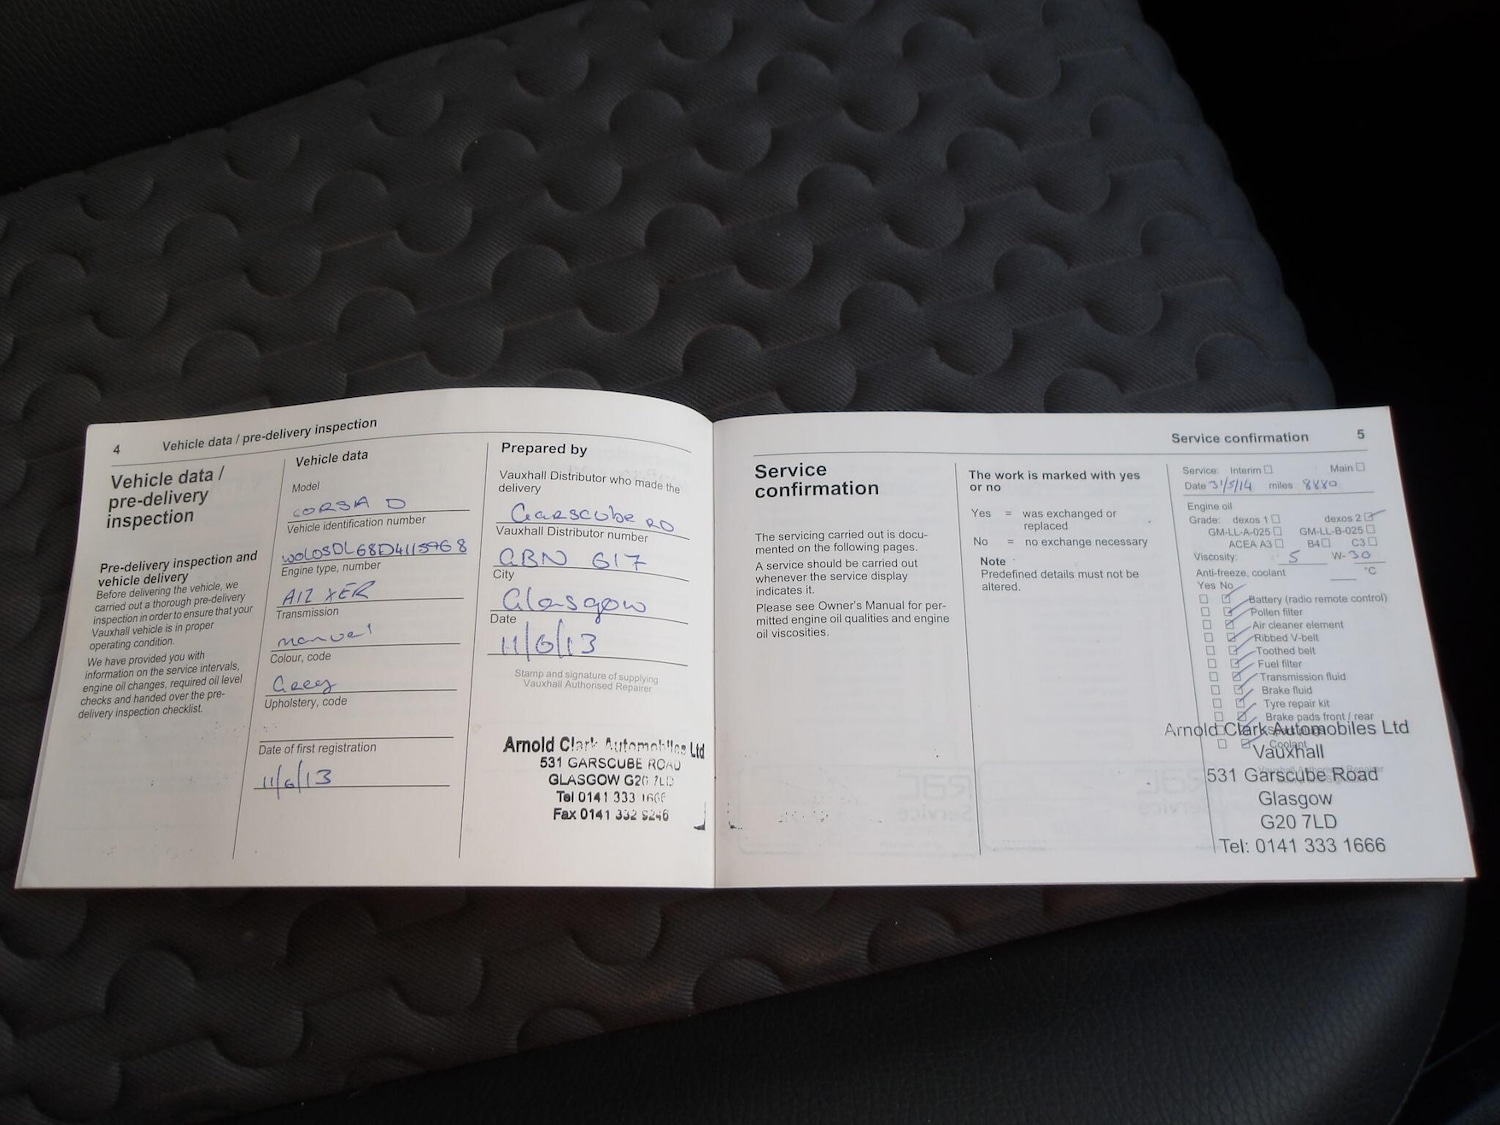 4
Vehicle data / pre-delivery inspection
Vehicle data /
pre-delivery
inspection
Pre-delivery inspection and
vehicle delivery
Before delivering the vehicle, we
carried out a thorough pre-delivery
inspection in order to ensure that your
Vauxhall vehicle is in proper
operating condition.
We have provided you with
information on the service intervals,
engine oil changes, required oil level
checks and handed over the pre-
delivery inspection checklist.
Vehicle data
Model
CORSA D
Vehicle identification number
Engine type, number
A12 XER
Transmission
manual
Colour, code
Grey
Upholstery, code
Date of first registration
11/6/13
Prepared by
Vauxhall Distributor who made the
delivery
Garscube RD
Vauxhall Distributor number
GBN 617
City
Glasgow
Date
11/6/13
Stamp and signature of supplying
Vauxhall Authorised Repairer
Arnold Clark Automobiles Ltd
531 GARSCUBE ROAD
GLASGOW G20 7LD
Tel 0141 333 1666
Fax 0141 332 9246
Service confirmation
5
Service
confirmation
The servicing carried out is docu-
mented on the following pages.
A service should be carried out
whenever the service display
indicates it.
Please see Owner's Manual for per-
mitted engine oil qualities and engine
oil viscosities.
The work is marked with yes
or no
Yes = was exchanged or
replaced
No = no exchange necessary
Note
Predefined details must not be
altered.
Service: Interim Main
Date 31/5/14 miles 8880
Engine oil
Grade: dexos 1 dexos 2
GM-LL-A-025 GM-LL-B-025
ACEA A3 B4 C3
Viscosity: 5 W-30
Anti-freeze, coolant °C
Yes No
Battery (radio remote control)
Pollen filter
Air cleaner element
Ribbed V-belt
Toothed belt
Fuel filter
Transmission fluid
Brake fluid
Tyre repair kit
Brake pads front / rear
Coolant
Arnold Clark Automobiles Ltd
Vauxhall
531 Garscube Road
Glasgow
G20 7LD
Tel: 0141 333 1666